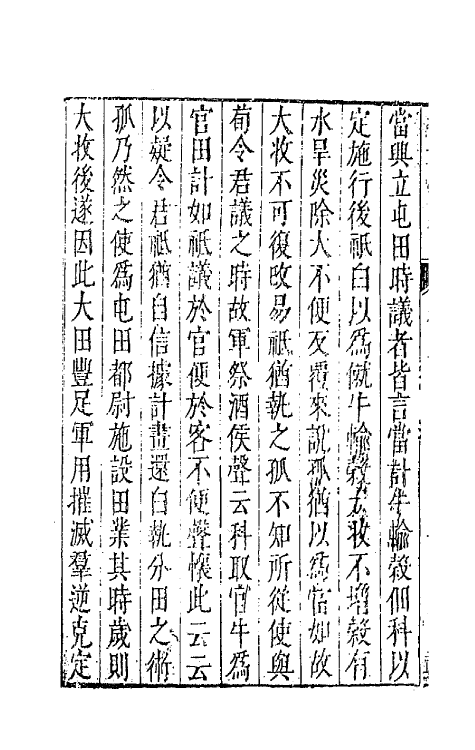 當興立屯田時議者皆言當計牛輸穀佃科以
定施行後祇白以爲僦牛輸穀大收不增穀有
水旱災除大不便反覆來說孤猶以爲當如故
大收不可復改易祇猶執之孤不知所從使與
荀令君議之時故軍祭酒侯聲云科取官牛爲
官田計如祇議於官便於客不便聲懷此云云
以疑令君祇猶自信據計畫還白執分田之術
孤乃然之使爲屯田都尉施設田業其時歲則
大收後遂因此大田豐足軍用摧滅羣逆克定